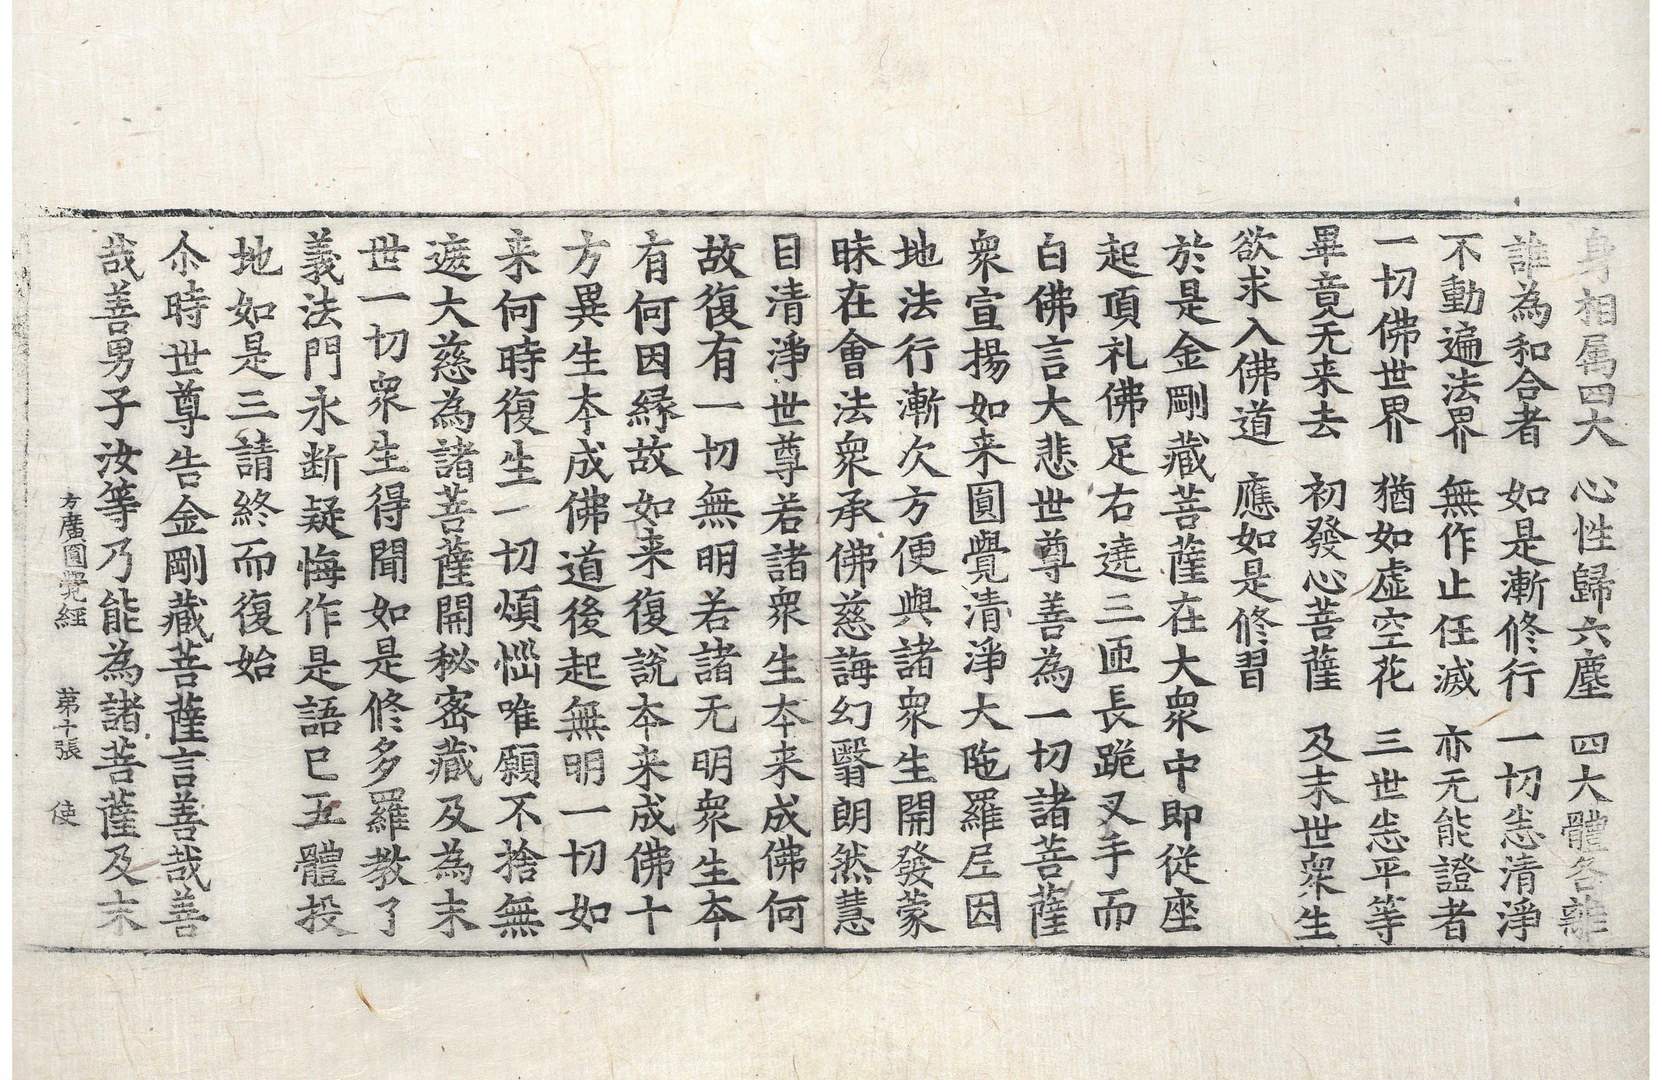 身相属四大 心性歸六塵 四大體各離
誰為和合者 如是漸修行 一切悉清淨
不動遍法界 無作止任滅 亦无能證者
一切佛世界 猶如虛空花 三世悉平等
畢竟无来去 初發心菩薩 及末世衆生
欲求入佛道 應如是修習
於是金剛藏菩薩在大衆中即從座
起頂礼佛足右遶三匝長跪叉手而
白佛言大悲世尊善為一切諸菩薩
衆宣揚如来圓覺清淨大陁羅尼因
地法行漸次方便與諸衆生開發蒙
昧在會法衆承佛慈誨幻翳朗然慧
目清淨世尊若諸衆生夲来成佛何
故復有一切無明若諸无明衆生夲
有何因縁故如来復說夲来成佛十
方異生夲成佛道後起無明一切如
来何時復生一切煩惱唯願不捨無
遮大慈為諸菩薩開秘密藏及為末
世一切衆生得聞如是修多羅教了
義法門永断疑悔作是語已五體投
地如是三請終而復始
尒時世尊告金剛藏菩薩言善哉善
哉善男子汝等乃能為諸菩薩及末
方廣圓覺經 第十張 使